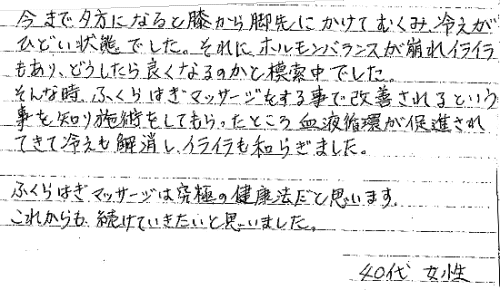 今まで夕方になると膝から脚先にかけてむくみ、冷えが
ひどい状態でした。それに、ホルモンバランスが崩れイライラ
もあり、どうしたら良くなるのかと模索中でした。
そんな時、ふくらはぎマッサージをする事で改善されるという
事を知り施術をしてもらったところ血液循環が促進され
てきて冷えも解消し、イライラも和らぎました。
ふくらはぎマッサージは究極の健康法だと思います。
これからも、続けていきたいと思いました。
40代 女性